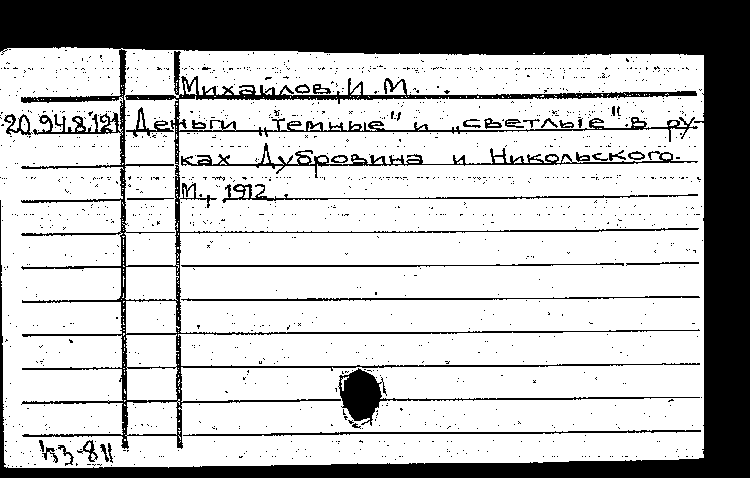 Михайлов, И. М.
20.94.8.121 Деньги „темные" и „светлые" в ру-
ках Дубровина и Никольского.
М., 1912.